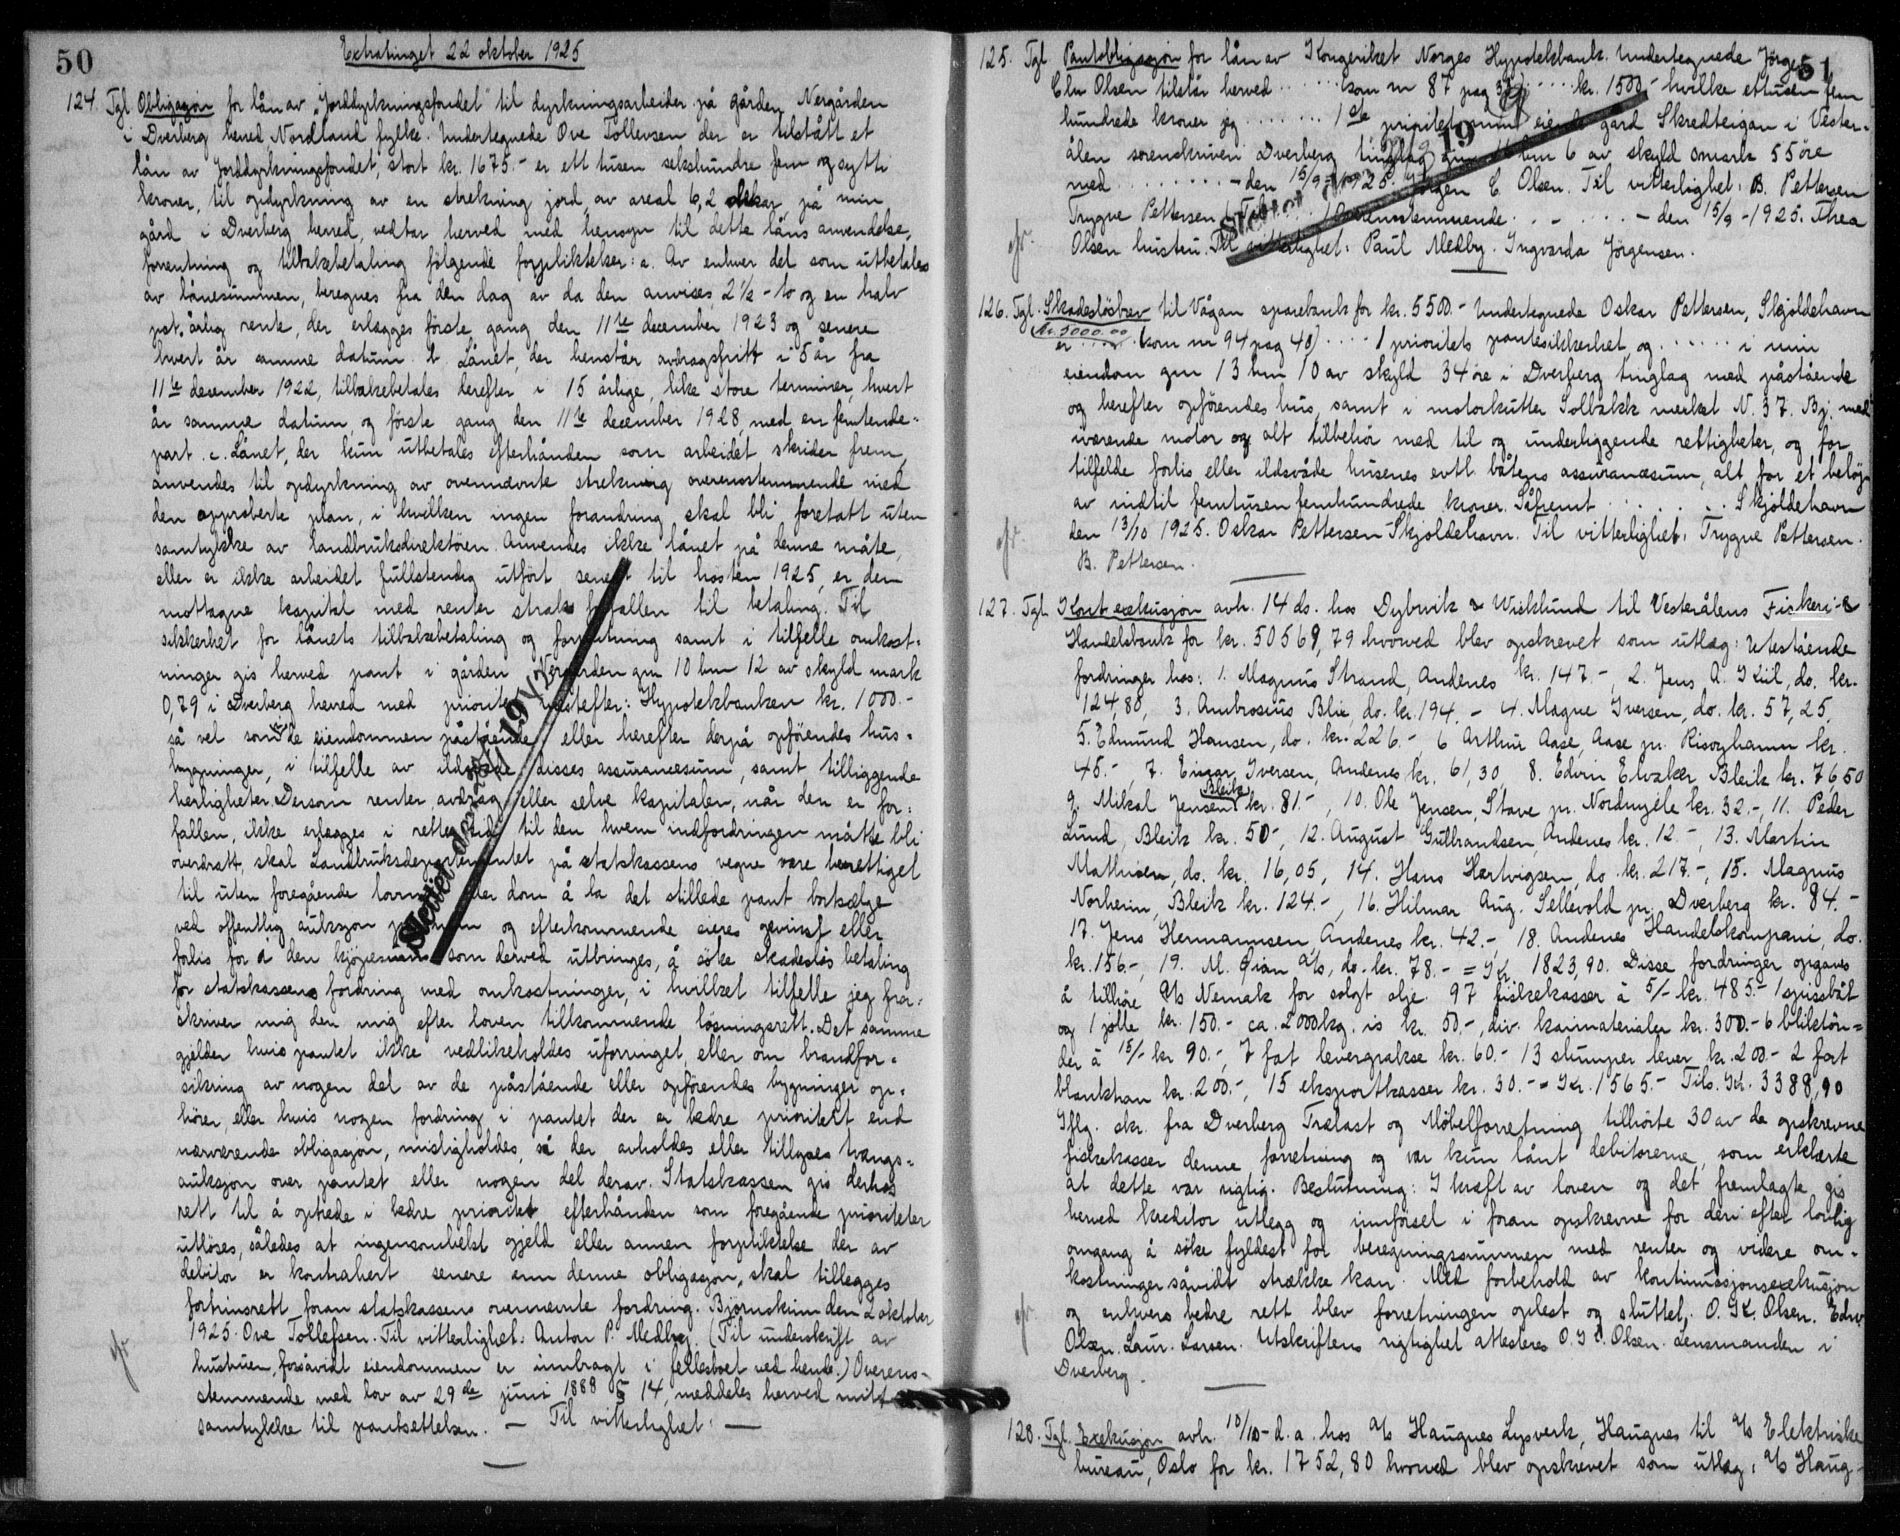 50
Extratinget 22 oktober 1925
124. Tgl Obligasjon for lån av "Jorddyrkningsfondet" til dyrkningsarbeider på gården Nergården
i Dverberg herred, Nordland fylke. Undertegnede Ove Tollevsen der er tilstått et
lån av Jorddyrkningsfondet, stort kr. 1675.- er ett tusen sekshundre fem og sytti
kroner, til opdyrkning av en strekning jord, av areal 6,2 dekar, på min
gård i Dverberg herred, vedtar herved med hensyn til dette låns anvendelse,
forrentning og tilbakebetaling følgende forpliktelser: a. Av enhver del som utbetales
av lånesummen, beregnes fra den dag av da den anvises, 2½ - to og en halv
pct. årlig rente, der erlegges første gang den 11te december 1923 og senere
hvert år samme datum. b. Lånet, der henstår avdragsfritt i 5 år fra
11te desember 1922, tilbakebetales derefter i 15 årlige, like store terminer, hvert
år samme datum og første gang den 11te december 1928, med en femtende=
part. c. Lånet, der kun utbetales efterhånden som arbeidet skrider frem,
anvendes til opdyrkning av ovennevnte strekning overensstemmende med
den approberte plan, i hvilken ingen forandring skal bli foretatt uten
samtykke av landbruksdirektøren. Anvendes ikke lånet på denne måte,
eller er ikke arbeidet fullstendig utført senest til høsten 1925, er den
mottagne kapital med renter straks forfallen til betaling. Til
sikkerhet for lånets tilbakebetaling og forrentning samt i tilfelle omkost=
ninger gis herved pant i gården Nergården gnr 10 bnr 12 av skyld mark
0,79 i Dverberg herred med prioritet nestefter: Hypotekbanken kr. 1000.-
så vel som de eiendommen påstående eller herefter derpå opførendes hus=
bygninger, i tilfelle av ildsvåde disses assuransesum, samt tilliggende
herligheter. Dersom renter, avdrag eller selve kapitalen, når den er for=
fallen, ikke erlegges i rette tid til den hvem indfordringen måtte bli
overdratt, skal Landbruksdepartementet på statskassens vegne være berettiget
til uten foregående lovmål eller dom å la det stillede pant bortselge
ved offentlig auksjon på min og efterkommende eieres gevinst eller
forlis for å i den kjøpesum som derved utbringes, å søke skadesløs betaling
for statskassens fordring med omkostninger, i hvilket tilfelle jeg fra=
skriver mig den mig efter loven tilkommende løsningsrett. Det samme
gjelder hvis pantet ikke vedlikeholdes uforringet, eller om brandfor=
sikring av nogen del av de påstående eller opførendes bygninger op=
hører, eller hvis nogen fordring i pantet der er bedre prioritert end
nærværende obligasjon, misligholdes, så der avholdes eller tillyses tvangs=
auksjon over pantet eller nogen del derav. Statskassen gis derhos
rett til å optrede i bedre prioritet efterhånden som foregående prioriteter
utløses, således at ingensomhelst gjeld eller annen forpliktelse der av
debitor er kontrahert senere enn denne obligasjon, skal tillegges
fortrinsrett foran statskassens ovennevnte fordring. Bjørnskinn den 2 oktober
1925. Ove Tollefsen. Til vitterlighet: Anton P. Medby. (Til underskrift av
hustruen, forsåvidt eiendommen er innbragt i fellesboet ved hende.) Overens-
stemmende med lov av 29de juni 1888 § 14, meddeles herved mitt
samtykke til pantsettelsen. — Til vitterlighet: —
Slettet 19
51
125. Tgl. Pantobligasjon for lån av Kongeriket Norges Hypotekbank. Undertegnede Jørgen
Chr Olsen tilstår herved ..... kom nr 87 pag 35) .... kr. 1500,- hvilke ettusen fem
hundrede kroner jeg ....... 1ste prioritet i min eiende gård Skredteigan i Vester=
ålen sorenskriveri Dverberg tinglag gnr 11 bnr 6 av skyld 0 mark 55 øre
med ........ - den 15/9-1925. Jørgen C. Olsen. Til vitterlighet: B. Pettersen
Trygve Pettersen. Overensstemmende .. - .... - den 15/9-1925. Thea
Olsen hustru. Til vitterlighet: Paul Medby. Ingvarda Jørgensen.
Slettet 19
126. Tgl. Skadesløsbrev til Vågan sparebank for kr. 5500.- Undertegnede Oskar Pettersen, Skjoldehavn
kr. 5000.00
er .... (kom nr 94 pag 40) .... 1 prioritets pantesikkerhet, og ...... i min
eiendom gnr 13 bnr 10 av skyld 34 øre i Dverberg tinglag med påstående
og herefter opførendes hus, samt i motorkutter Solbakk merket N. 37. Bj. med
iværende motor og alt tilbehør med til og underliggende rettigheter, og for
tilfelde forlis eller ildsvåde husenes evtl. båtens assuransesum, alt for et beløp
av indtil femtusen femhundrede kroner. Såfremt ...... Skjoldehavn
den 13/10 1925. Oskar Pettersen Skjoldehavn. Til vitterlighet: Trygve Pettersen.
B. Pettersen.
127. Tgl. Utlæg exekusjon avh. 14 ds. hos Dybvik & Wicklund til Vesterålens Fiskeri- &
Handelsbank for kr. 50569,79 hvorved blev opskrevet som utlæg: Utestående
fordringer hos: 1. Magnus Strand, Andenes kr. 147.-, 2. Jens A. Kiil, do. kr.
124,80, 3. Ambrosius Blix, do. kr. 194.- 4. Magne Iversen, do. kr. 57,25,
5. Edmund Hansen, do. kr. 226.-, 6 Arthur Aase, Aase pr. Risøyhamn kr.
45.-, 7. Einar Iversen, Andenes kr. 61,30, 8. Edvin Elvaker Bleik kr. 76,50
9. Mikal Jensen Bleik kr. 81.-, 10. Ole Jensen, Stave pr. Nordmjele kr. 32.-, 11. Peder
Lund, Bleik kr. 50-, 12. August Gulbrandsen, Andenes kr. 12.-, 13. Martin
Mathisen, do. kr. 16,05, 14. Hans Hartvigsen, do. kr. 217.-, 15. Magnus
Norheim, Bleik kr. 124.-, 16. Hilmar Aug. Sellevold pr. Dverberg kr. 84.-
17. Jens Hermannsen, Andenes kr. 42.-, 18. Andenes Handelskompani, do.
kr. 156.-, 19. M. Øian A/s, do. kr. 78.- = Kr. 1823,90. Disse fordringer opgaves
å tilhøre A/s Nemak for solgt olje. 97 fiskekasser à 5/- kr. 485.- 1 spissbåt
og 1 jolle kr. 150.- ca. 2000 kg. is kr. 50.-, div. kaimaterialer kr. 300.- 6 bliktøn=
der à 15/- kr 90.-, 7 fat levergrakse kr. 60.- 13 stumper lever kr. 200.- 2 fat
blanktran kr. 200.-, 15 eksportkasser kr. 30.- = Kr. 1565.- Tils. Kr. 3388,90
Iflg. skr. fra Dverberg Trælast og Møbelforretning tilhørte 30 av de opskrevne
fiskekasser denne forretning og var kun lånt debitorene, som erklærte
at dette var rigtig. Beslutning: I kraft av loven og det fremlagte gis
herved kreditor utlegg og innførsel i foran opskrevne for deri efter lovlig
omgang å søke fyldest for beregningssummen med renter og videre om=
kostninger såvidt strekke kan. Med forbehold av kontinuasjonsexekusjon
og enhvers bedre rett blev forretningen oplest og sluttet. O. K. Olsen. Edv
Olsen. Laur. Larsen. Utskriftens rigtighet attesteres O. K. Olsen. Lensmanden i
Dverberg.
128. Tgl. Exekusjon avh. 10/10 - d.a. hos A/s Haugnes Lysverk, Haugnes til A/s Elektriske
bureau, Oslo for kr. 1752,80 hvorved blev opskrevet som utlæg: A/s Haug-